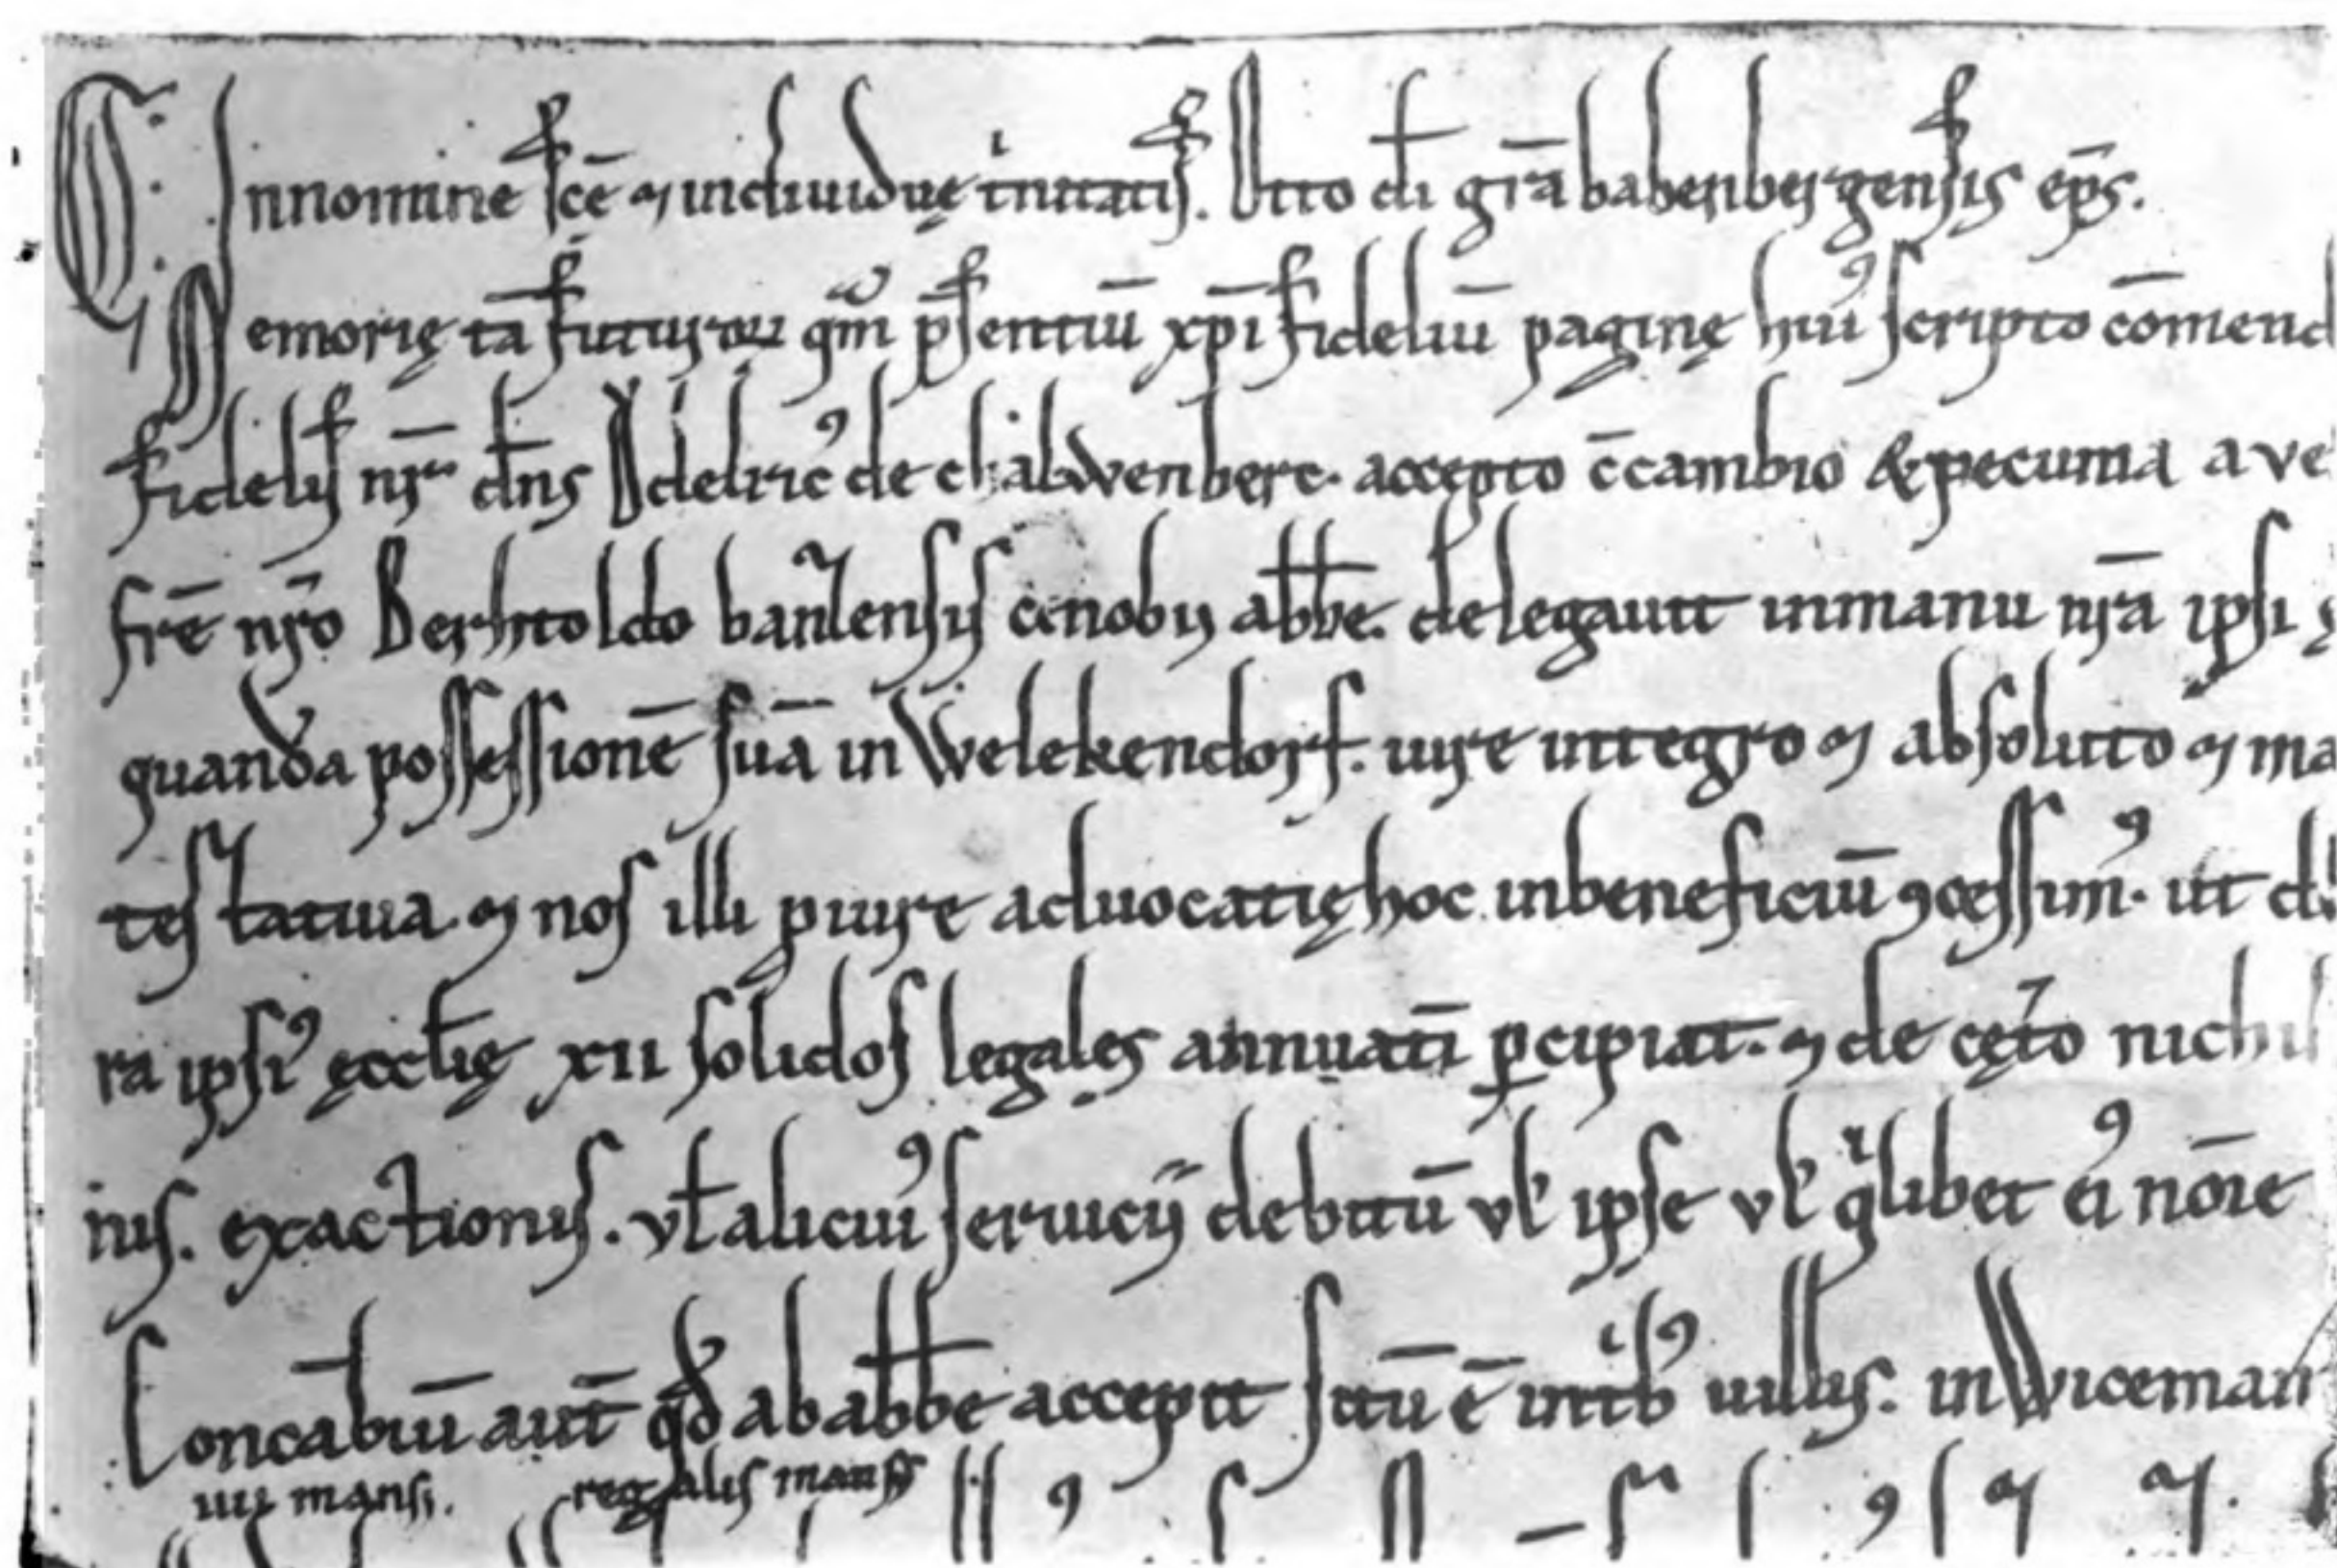 In nomine sc̄ę ⁊ indiuiduę trinitatis. Otto dī gr̄a babenbergensis ep̄s.
Memorię tā futuroꝝ qͣm p̄sentiū xp̄i fideliū paginę huiꝰ scripto cōmend
fidelis nr̄ dn̄s Ǒdelricꝰ de chalwenberc. accepto c̄cambio & pecunia a ve
fr̄e nr̄o Berhtoldo banzlensis cenobij abb̄e. delegauit in manu nr̄a ipsi
quanda possessionē suā in Welekendorf. iure integro ⁊ absoluto ⁊ ma
testatiua. ⁊ nos illi p iure aduocatię hoc in beneficiū ꝯcessimꝰ. ut d
ra ipsiꝰ ęccl̄ię xii solidos legales annuatī ꝑcipiat. ⁊ de cęt̄o nichil
ius. exactionis. vl̄ alicuiꝰ seruicij debitū vl̄ ipse vl̄ qͥlibet eiꝰ nōie
Concābiū aut̄ qd̄ ab abb̄e accepit sitū ē in tͥbꝰ uillis. in Wiceman
iiii mansi. regalis mansꝰ